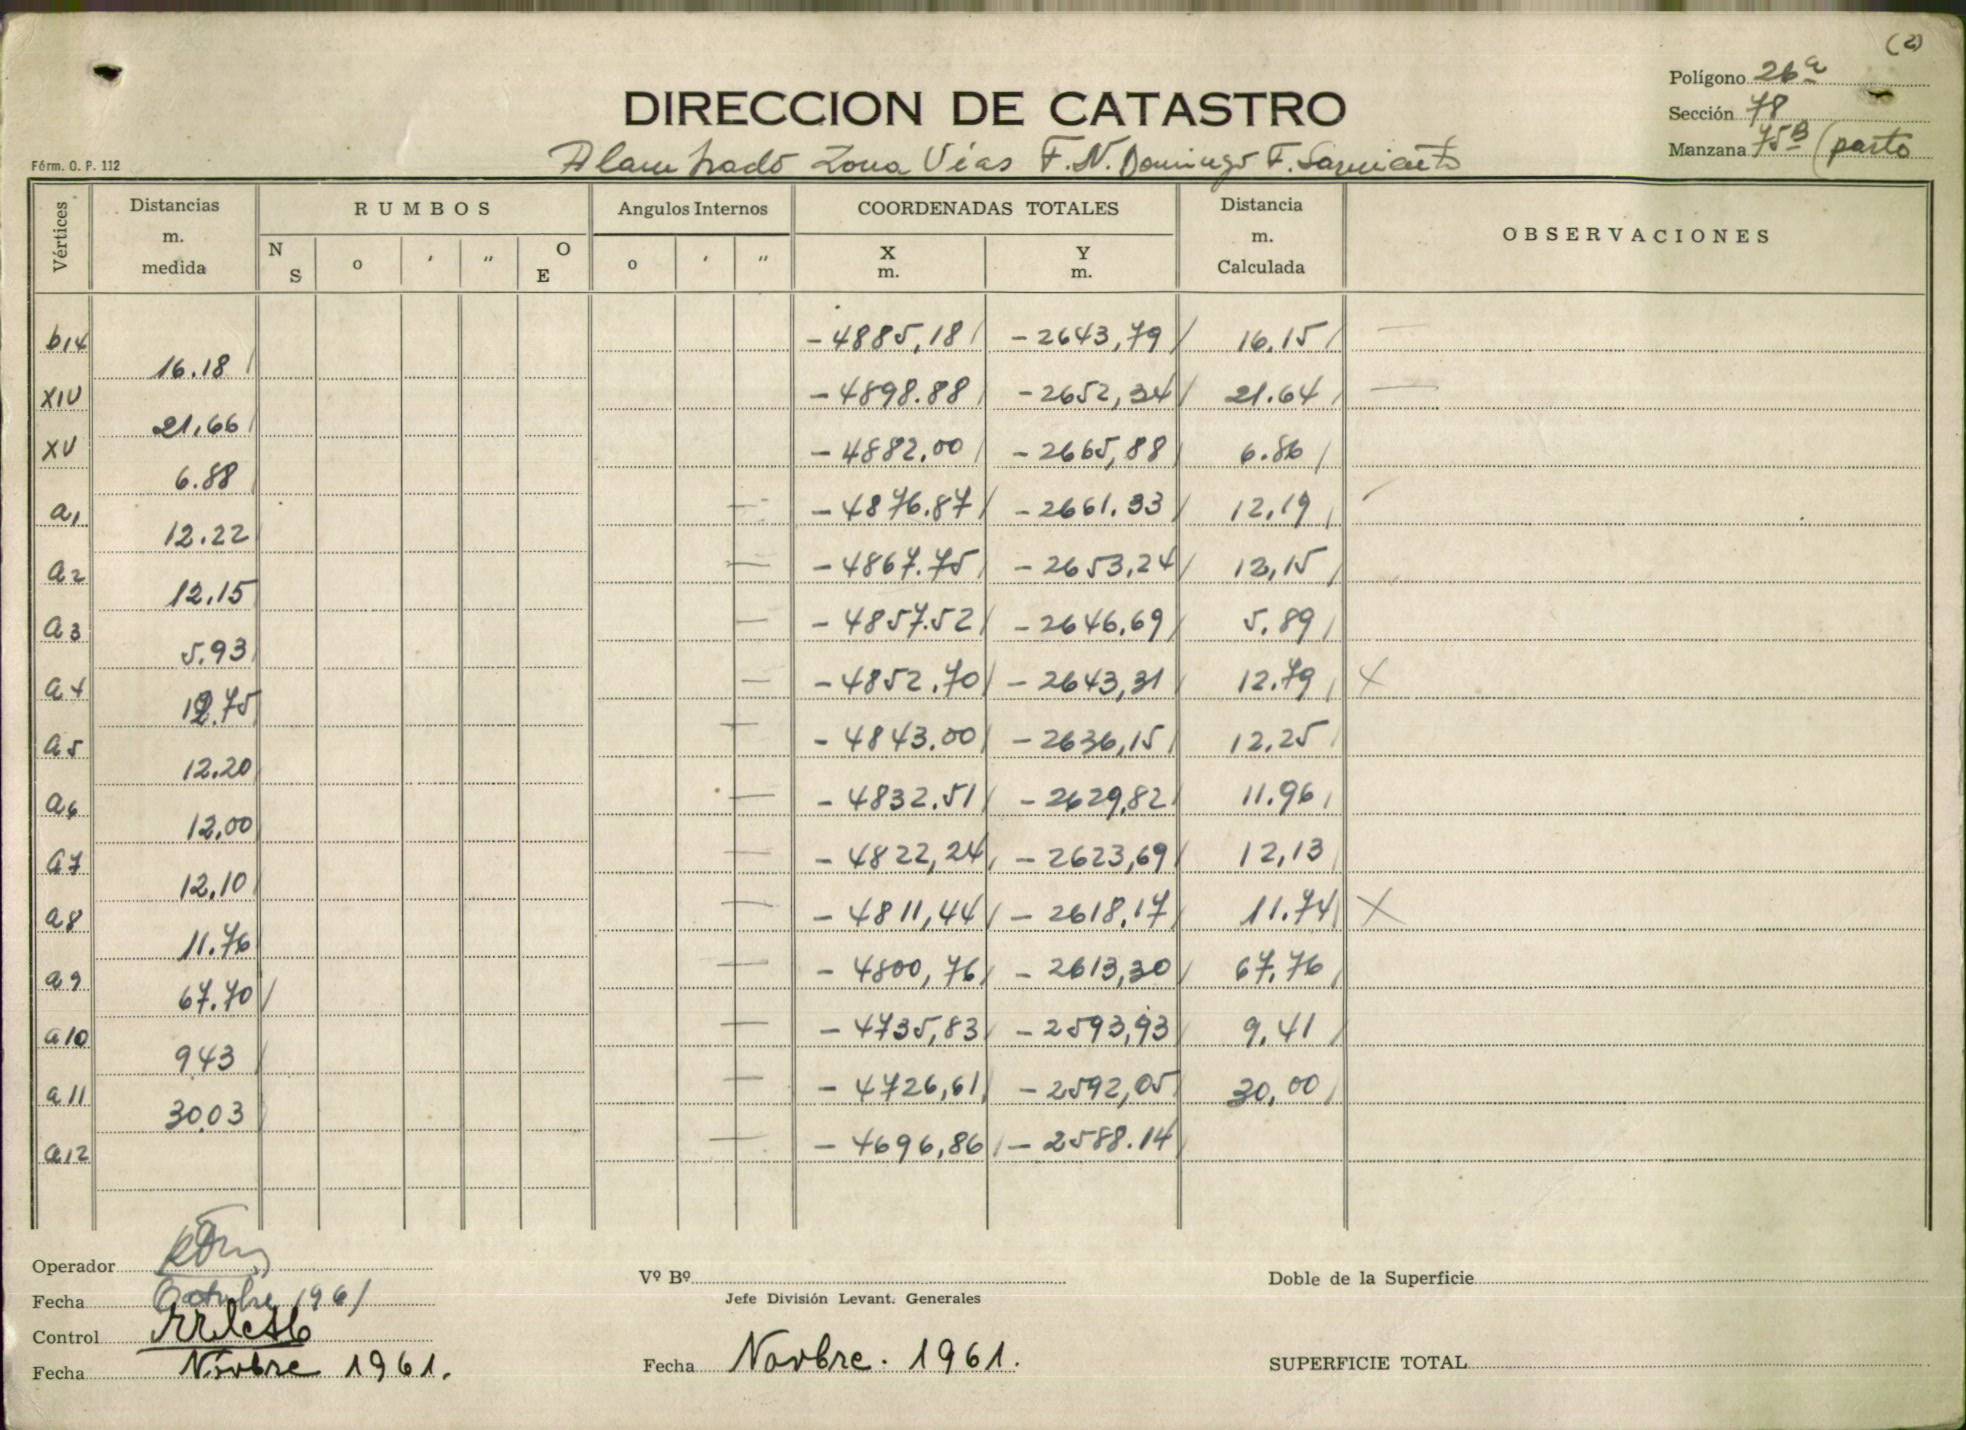 (2)
Polígono 26ª
DIRECCION DE CATASTRO
Sección 78
Manzana 75B (parte
Fórm. O. P. 112
Alambrado Zona Vías F.N. Domingo F. Sarmiento
Vértices
Distancias m. medida
RUMBOS
Angulos Internos
COORDENADAS TOTALES
Distancia m. Calculada
OBSERVACIONES
N S o ' " O E
o ' "
X m. Y m.
b14 -4885,18 -2643,79 16,15
16.18
XIV -4898.88 -2652,34 21.64
21,66
XV -4882,00 -2665,88 6.86
6.88
a1 -4876.87 -2661.33 12,19
12.22
a2 -4867.75 -2653,24 12,15
12.15
a3 -4857.52 -2646,69 5,89
5.93
a4 -4852,70 -2643,31 12.79 X
12.75
a5 -4843,00 -2636,15 12,25
12.20
a6 -4832.51 -2629,82 11.96
12,00
a7 -4822,24 -2623,69 12,13
12,10
a8 -4811,44 -2618,17 11.74 X
11.76
a9 -4800,76 -2613,30 67,76
67.70
a10 -4735,83 -2593,93 9,41
943
a11 -4726,61 -2592,05 30,00
30.03
a12 -4696,86 -2588.14
Operador
Fecha Octubre 1961
Control
Fecha Novbre 1961.
Vº Bº
Jefe División Levant. Generales
Fecha Novbre. 1961.
Doble de la Superficie
SUPERFICIE TOTAL